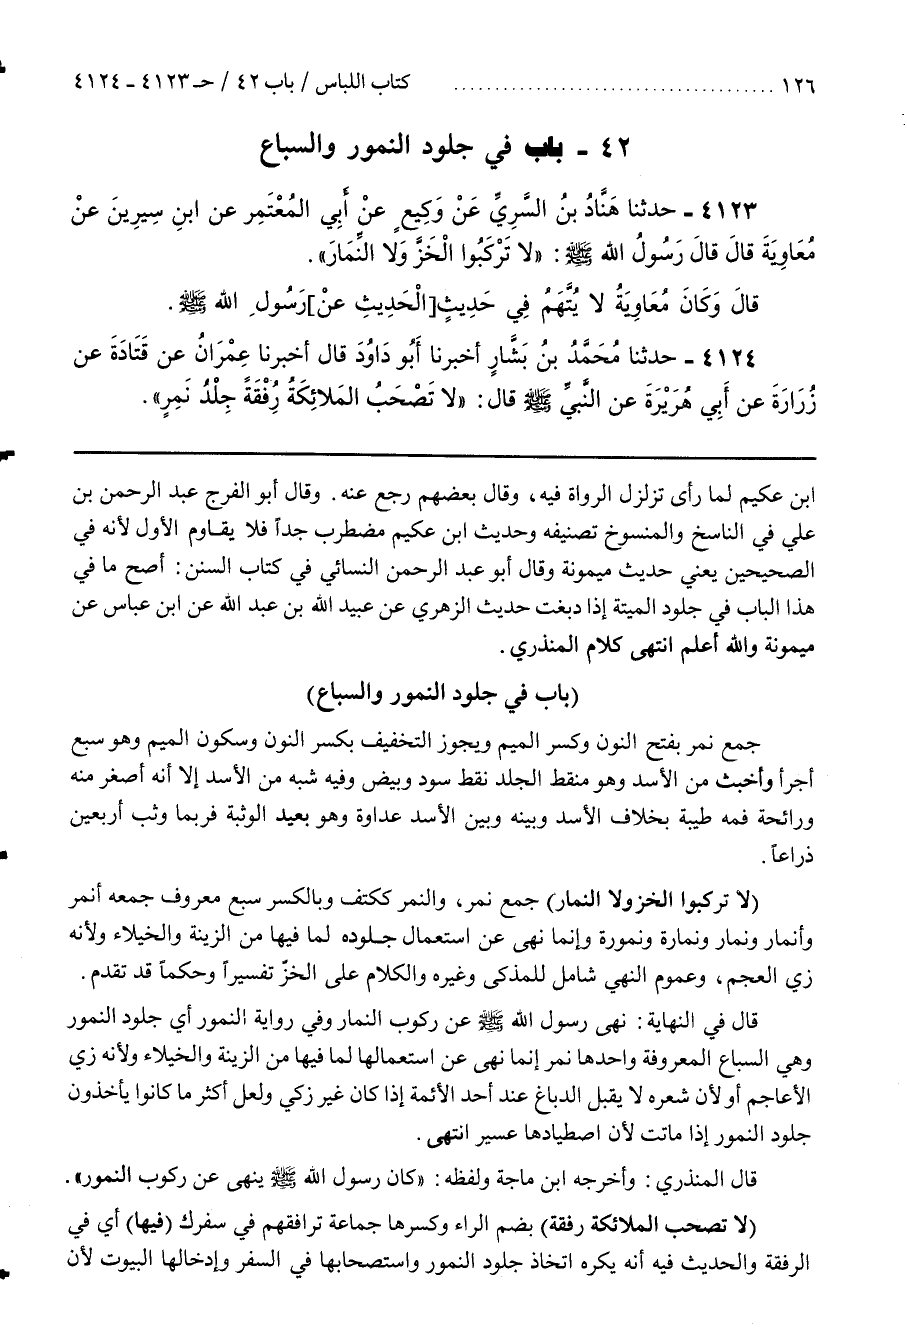 ١٢٦ ........................................ كتاب اللباس / باب ٤٢ / حـ ٤١٢٣ ـ ٤١٢٤
٤٢ ـ باب في جلود النمور والسباع
٤١٢٣ ـ حدثنا هَنَّادُ بنُ السَّرِيِّ عَنْ وَكِيعٍ عنْ أَبِي المُعْتَمِرِ عن ابنِ سِيرِينَ عنْ
مُعَاوِيَةَ قالَ قالَ رَسُولُ الله ﷺ: «لا تَرْكَبُوا الْخَزَّ وَلا النِّمَارَ».
قالَ وَكَانَ مُعَاوِيَةُ لا يُتَّهَمُ فِي حَدِيثِ[الْحَدِيثِ عنْ]رَسُولِ الله ﷺ.
٤١٢٤ ـ حدثنا مُحَمَّدُ بنُ بَشَّارٍ أخبرنا أَبُو دَاوُدَ قال أخبرنا عِمْرَانُ عن قَتَادَةَ عن
زُرَارَةَ عن أَبِي هُرَيْرَةَ عن النَّبيِّ ﷺ قال: «لا تَصْحَبُ المَلائِكَةُ رُفْقَةً جِلْدُ نَمِرٍ».
ابن عكيم لما رأى تزلزل الرواة فيه، وقال بعضهم رجع عنه. وقال أبو الفرج عبد الرحمن بن
علي في الناسخ والمنسوخ تصنيفه وحديث ابن عكيم مضطرب جداً فلا يقاوم الأول لأنه في
الصحيحين يعني حديث ميمونة وقال أبو عبد الرحمن النسائي في كتاب السنن: أصح ما في
هذا الباب في جلود الميتة إذا دبغت حديث الزهري عن عبيد الله بن عبد الله عن ابن عباس عن
ميمونة والله أعلم انتهى كلام المنذري.
(باب في جلود النمور والسباع)
جمع نمر بفتح النون وكسر الميم ويجوز التخفيف بكسر النون وسكون الميم وهو سبع
أجرأ وأخبث من الأسد وهو منقط الجلد نقط سود وبيض وفيه شبه من الأسد إلا أنه أصغر منه
ورائحة فمه طيبة بخلاف الأسد وبينه وبين الأسد عداوة وهو بعيد الوثبة فربما وثب أربعين
ذراعاً.
(لا تركبوا الخز ولا النمار) جمع نمر، والنمر ككتف وبالكسر سبع معروف جمعه أنمر
وأنمار ونمار ونمارة ونمورة وإنما نهى عن استعمال جلوده لما فيها من الزينة والخيلاء ولأنه
زي العجم، وعموم النهي شامل للمذكى وغيره والكلام على الخزّ تفسيراً وحكماً قد تقدم.
قال في النهاية: نهى رسول الله ﷺ عن ركوب النمار وفي رواية النمور أي جلود النمور
وهي السباع المعروفة واحدها نمر إنما نهى عن استعمالها لما فيها من الزينة والخيلاء ولأنه زي
الأعاجم أو لأن شعره لا يقبل الدباغ عند أحد الأئمة إذا كان غير زكي ولعل أكثر ما كانوا يأخذون
جلود النمور إذا ماتت لأن اصطيادها عسير انتهى.
قال المنذري: وأخرجه ابن ماجة ولفظه: «كان رسول الله ﷺ ينهى عن ركوب النمور».
(لا تصحب الملائكة رفقة) بضم الراء وكسرها جماعة ترافقهم في سفرك (فيها) أي في
الرفقة والحديث فيه أنه يكره اتخاذ جلود النمور واستصحابها في السفر وإدخالها البيوت لأن